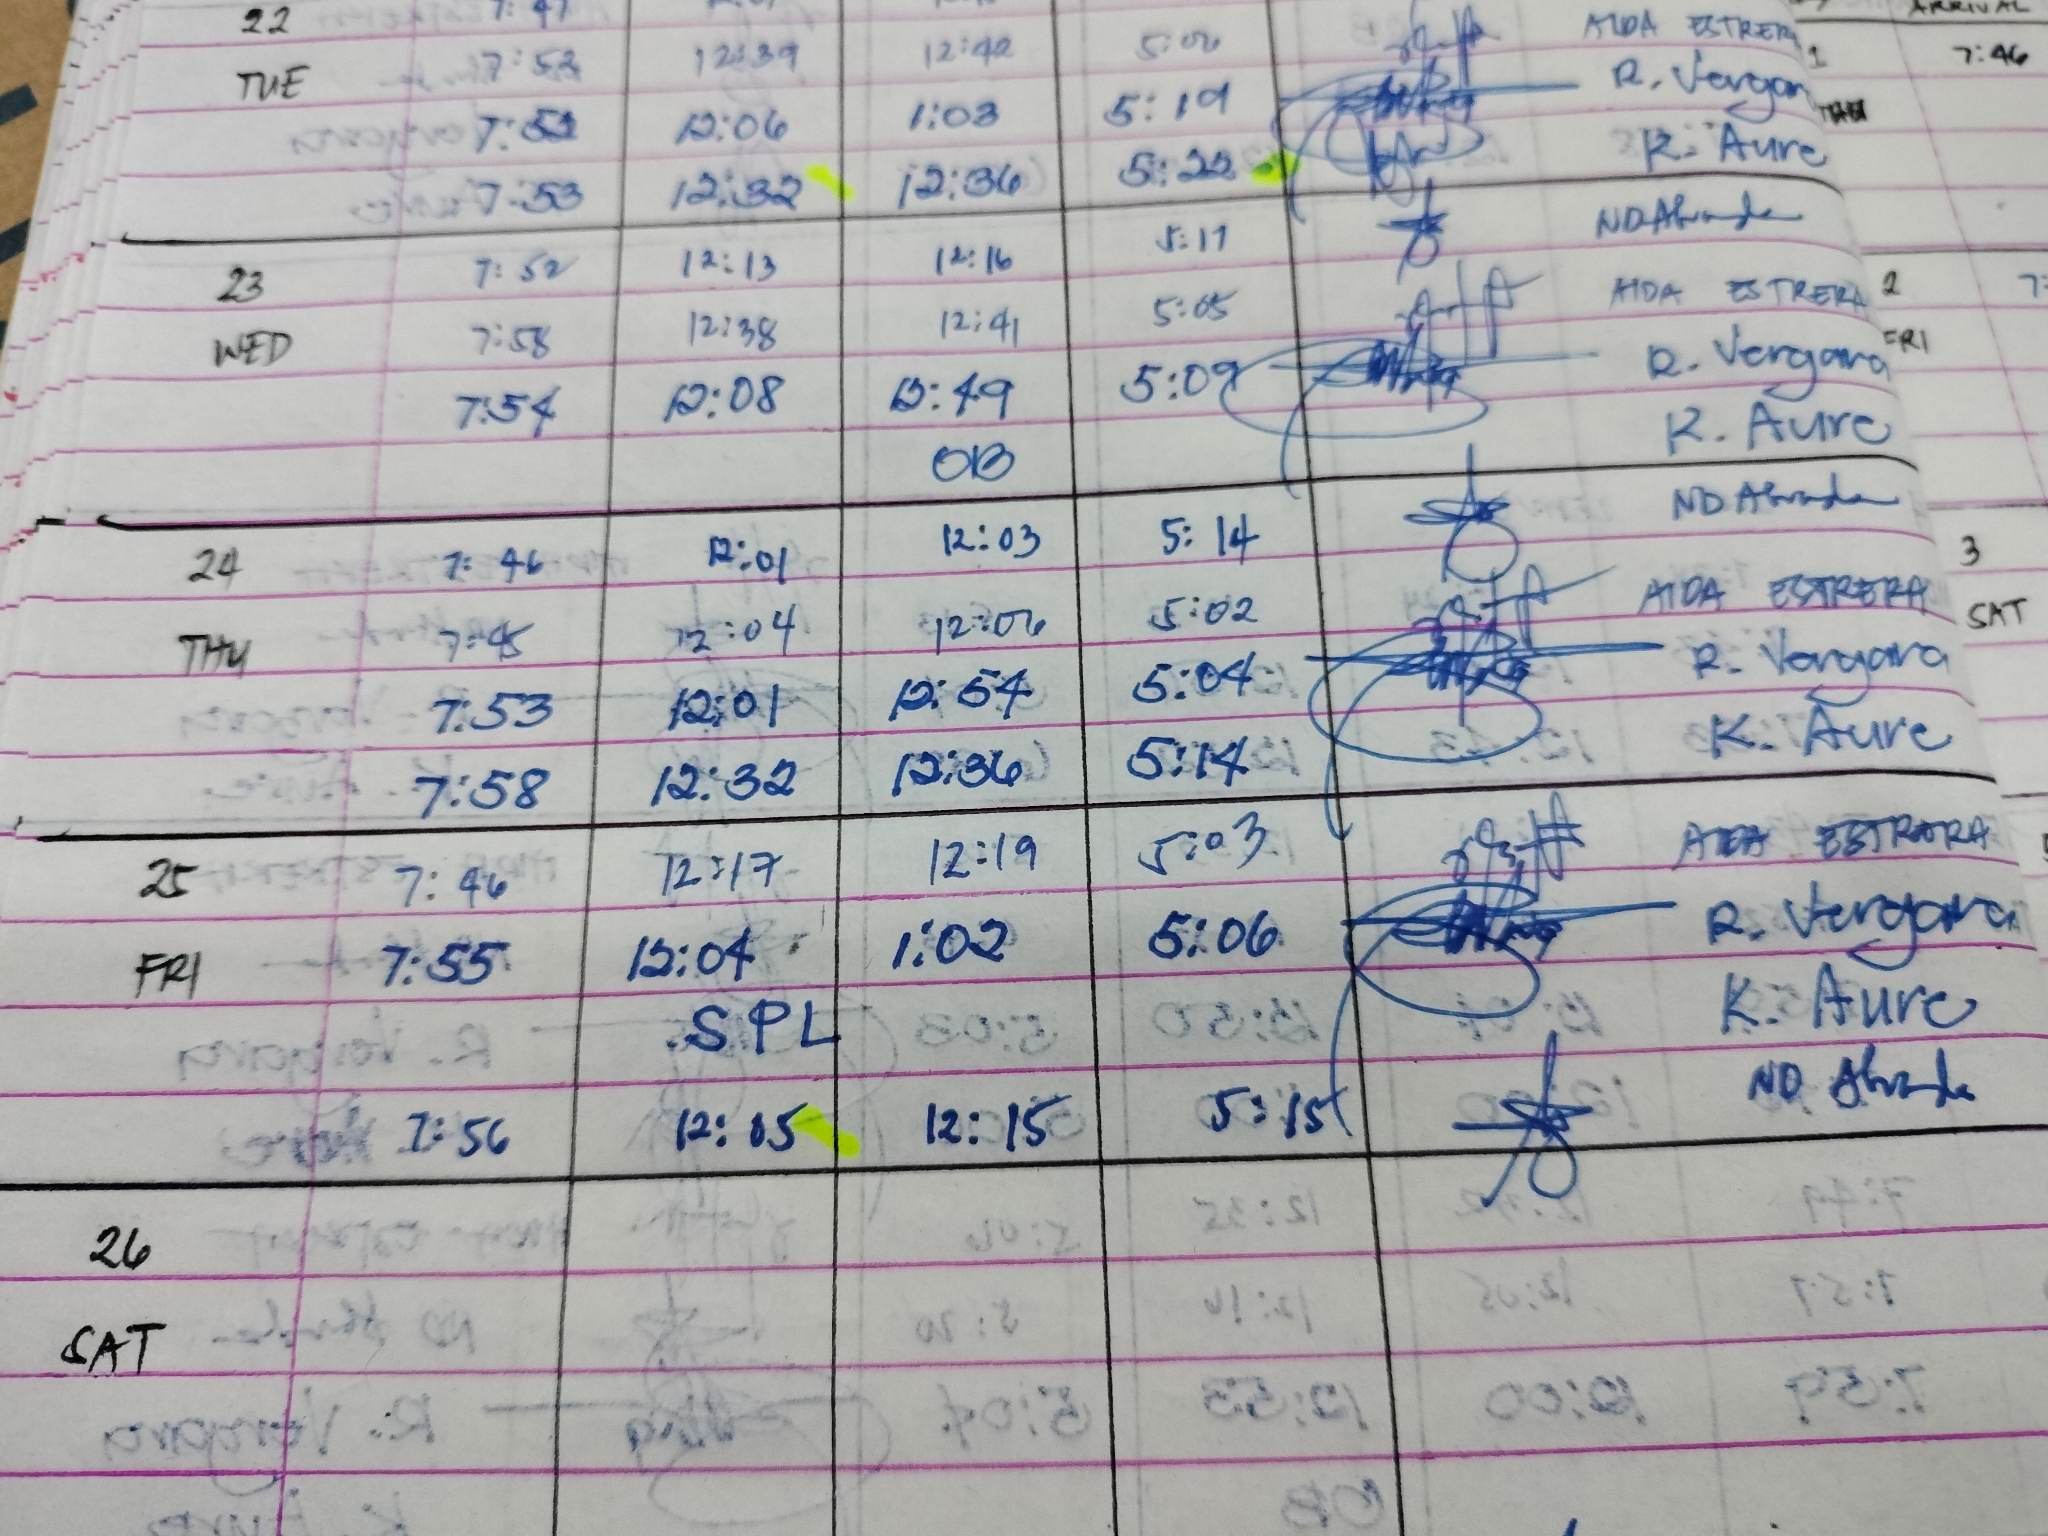 22 7:47
TUE 7:52 12:39 12:42 5:06 AIDA ESTRERA
7:52 12:06 1:03 5:19 R. Vergara
7:53 12:32 12:36 5:22 K. Aure
23 7:52 12:13 12:16 5:17 ND
WED 7:58 12:38 12:41 5:05 AIDA ESTRERA
7:54 12:08 12:49 5:09 R. Vergara
OB K. Aure
24 7:46 12:01 12:03 5:14 ND
THU 7:45 12:04 12:06 5:02 AIDA ESTRERA
7:53 12:01 12:54 5:04 R. Vergara
7:58 12:32 12:36 5:14 K. Aure
25 7:46 12:17 12:19 5:03 AIDA ESTRARA
FRI 7:55 12:04 1:02 5:06 R. Vergara
SPL K. Aure
7:56 12:05 12:15 5:15 ND
26
SAT
ARRIVAL
1 7:46
2 7:
FRI
3
SAT